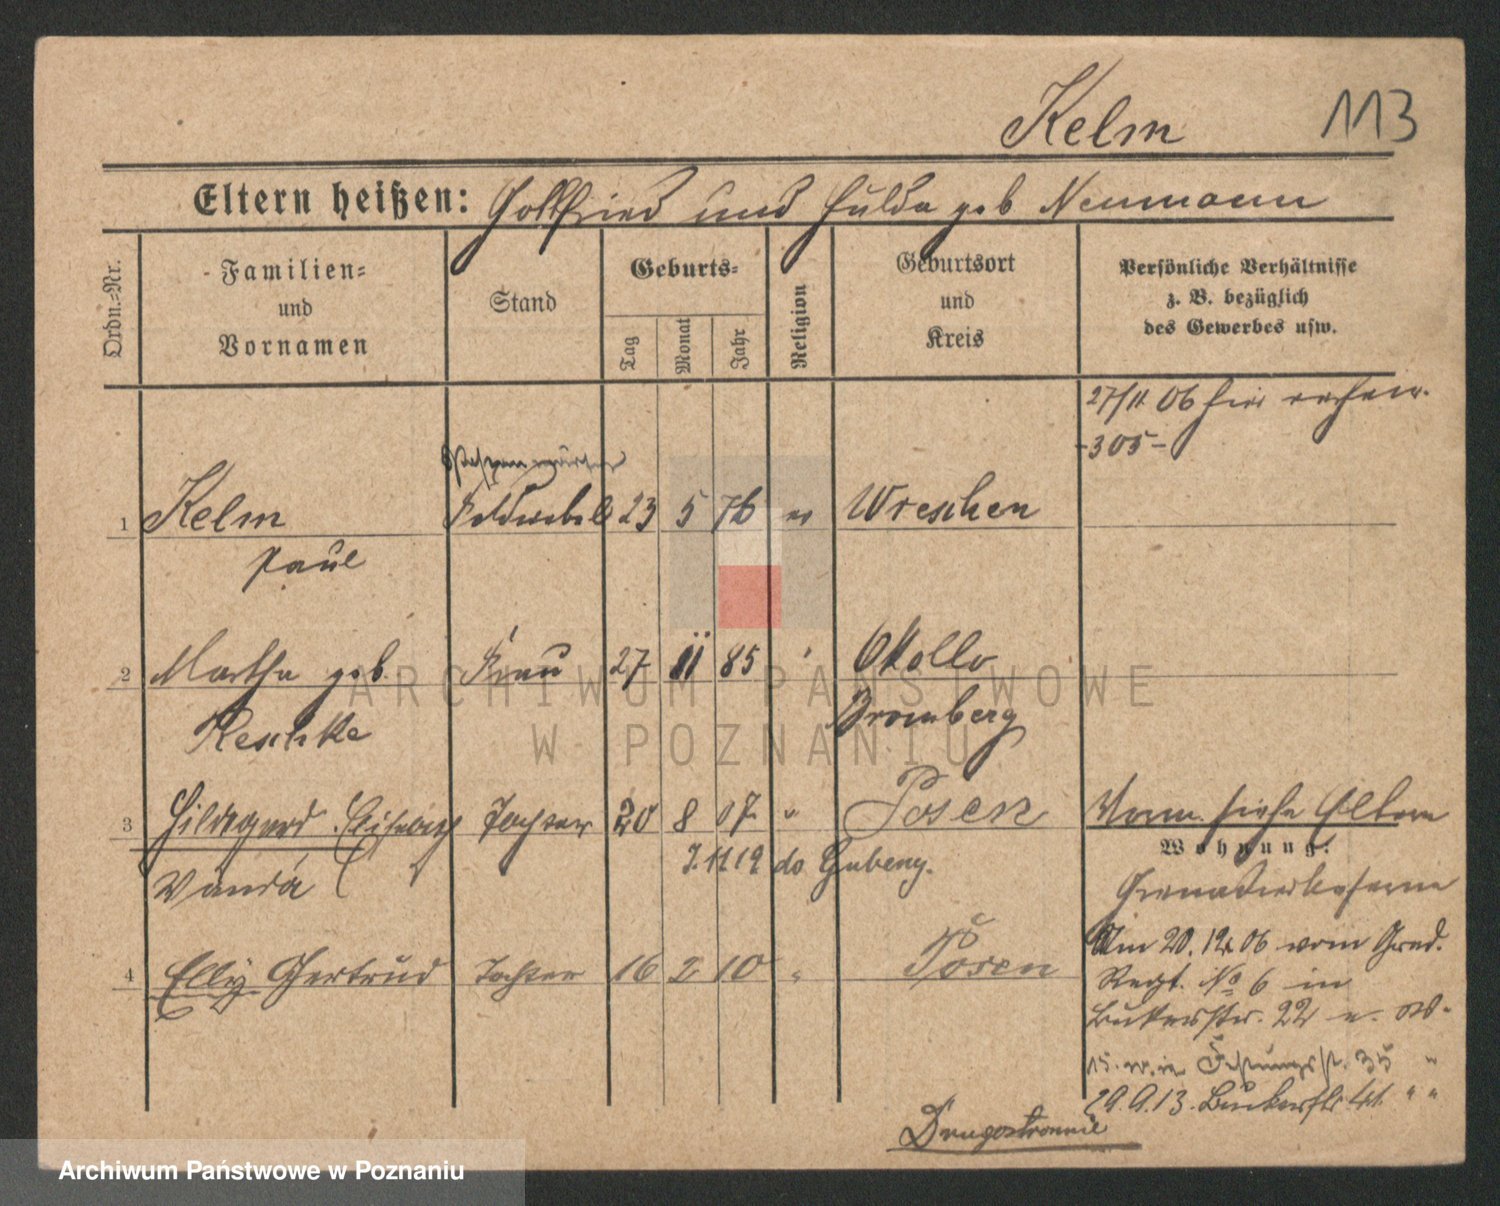 Kelm 113
Eltern heißen: Gottfried und Hulda geb Neumann
Ordn.=Nr.
Familien=
und
Vornamen
Stand
Geburts=
Tag
Monat
Jahr
Religion
Geburtsort
und
Kreis
Persönliche Verhältnisse
z. B. bezüglich
des Gewerbes usw.
27/11. 06 hier
-305-
1 Kelm Feldwebel 23 5 76 ev Wreschen
Paul
2 Martha geb. Frau 27 11 85 Okollo
Reschke Bromberg
3 Hildegard Elisabeth Tochter 20 8 07 " Posen
Wanda
7.11 19 do
Vorm. siehe Eltern
Wohnung:
Grenadierkaserne
Am 20. 12. 06 vom Gren.
Regt. No 6 in
Bukerstr. 22
4 Elly Gertrud Tochter 16 2 10 " Posen
35 "
29.9.13. " "
Drugostronnie
ARCHIWUM PAŃSTWOWE
W POZNANIU
Archiwum Państwowe w Poznaniu